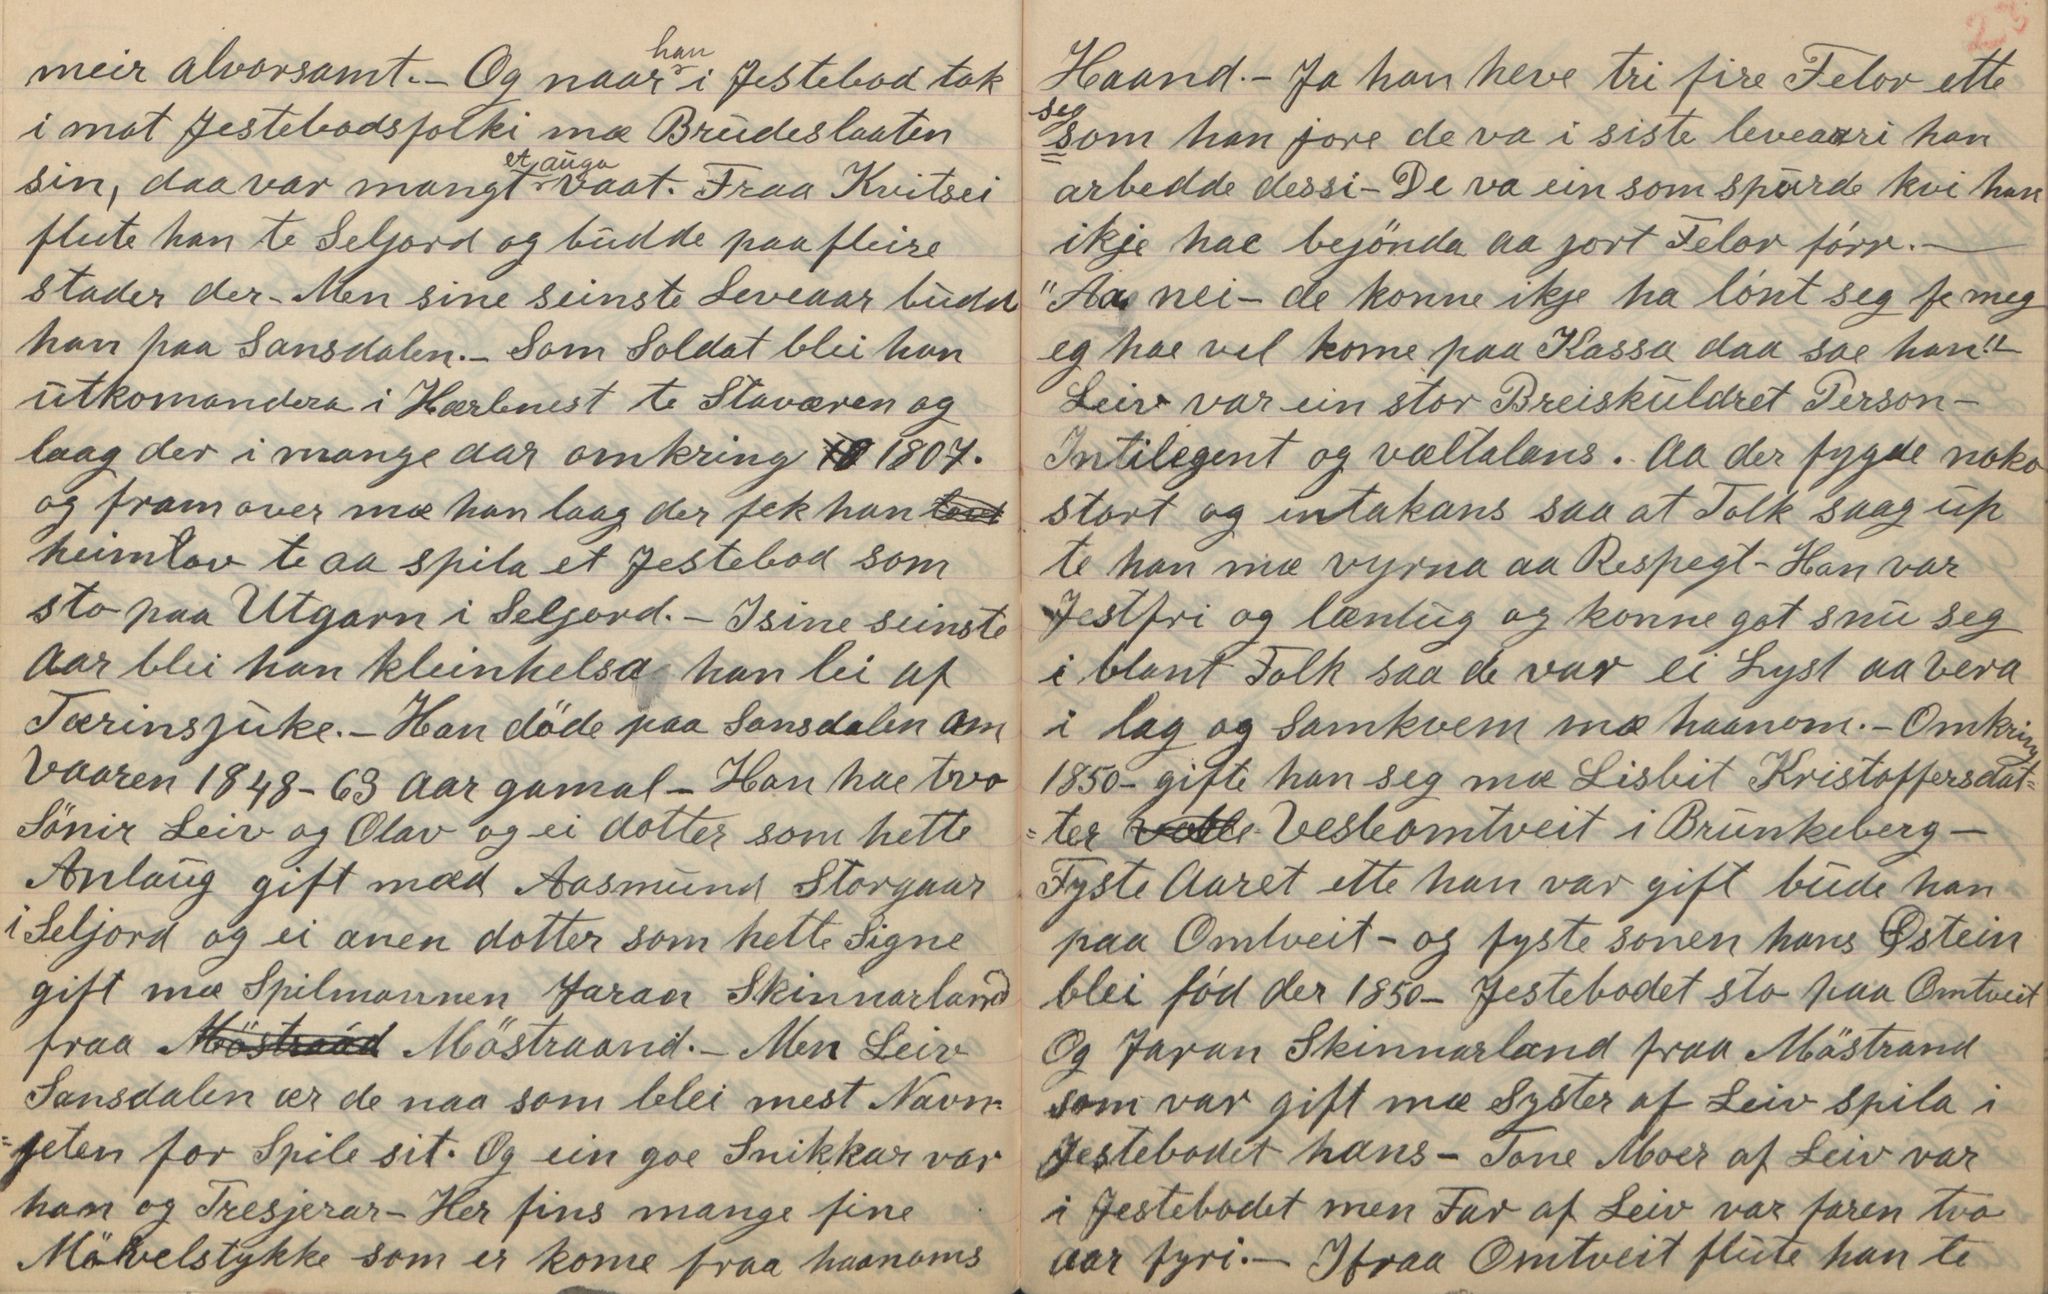 meir alvorsamt.- Og naar han i Jestebod tok
i mot Jestebodsfolki mæ Brudeslaaten
sin, daa var mangt et auga vaat. Fraa Kvitsei
flute han te Seljord og budde paa fleire
stader der- Men sine seinste Leveaar budd
han paa Sansdalen.- Som Soldat blei han
utkomandera i Hærbenest te Staværen og
laag der i mange aar omkring 1807.
og framover mæ han laag der fek han
heimlov te aa spila et Jestebod som
sto paa Utgarn i Seljord.- I sine seinste
Aar blei han kleinhelsa han lei af
Tærinsjuke.- Han döde paa Sansdalen om
Vaaren 1848- 63 Aar gamal- Han hae tvo
Sönir Leiv og Olav og ei dotter som hette
Anlaug gift mæd Aasmund Storgaar
i Seljord og ei anen dotter som hette Signe
gift mæ Spilmannen Jaran Skinnarland
fraa Möstraand.- Men Leiv
Sansdalen ær de naa som blei mest Navn=
=jeten for Spile sit. Og ein goe Snikkar var
han og Tresjerar- Her fins mange fine
Möbelstykke som er kome fraa haanoms
23
Haand.- Ja han heve tri fire Felor ette
seg som han jore de va i siste leveaari han
arbedde dessi- De va ein som spurde kvi han
ikje hae bejönda aa jort Felor förr.-
"Aa nei- de konne ikje ha lönt seg fe meg
eg hae vel kome paa Kassa daa sae han"-
Leiv var ein stor Breiskuldret Person-
Intilegent og væltalans. Aa der fygde noko
stort og intakans saa at Folk saag up
te han mæ vyrna aa Respegt- Han var
Jestfri og lænlug og konne got snu seg
i blant Folk saa de var ei Lyst aa vera
i lag og Samkvem mæ haanom.- Omkring
1850- gifte han seg mæ Lisbit Kristoffersdat=
=ter Vesleomtveit i Brunkeberg-
Fyste Aaret ette han var gift bude han
paa Omtveit- og fyste sonen hans Østein
blei föd der 1850- Jestebodet sto paa Omtveit
Og Jaran Skinnarland fraa Möstrand
som var gift mæ Syster af Leiv spila i
Jestebodet hans- Tone Moer af Leiv var
i Jestebodet men Far af Leiv var faren tvo
aar fyri.- Ifraa Omtveit flute han te